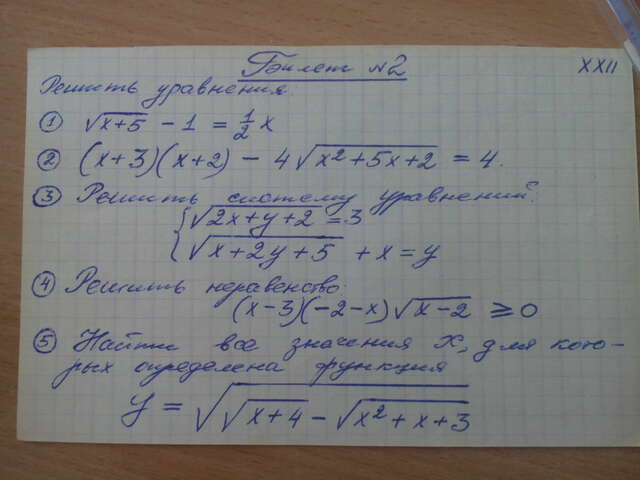 Билет №2 XXII
Решить уравнения.
① √(x+5) - 1 = 1/2 x
② (x+3)(x+2) - 4√(x²+5x+2) = 4.
③ Решить систему уравнений:
{ √(2x+y+2) = 3
√(x+2y+5) + x = y
④ Решить неравенство:
(x-3)(-2-x)√(x-2) ⩾ 0
⑤ Найти все значения X, для кото-
рых определена функция
y = √(√(x+4) - √(x²+x+3))